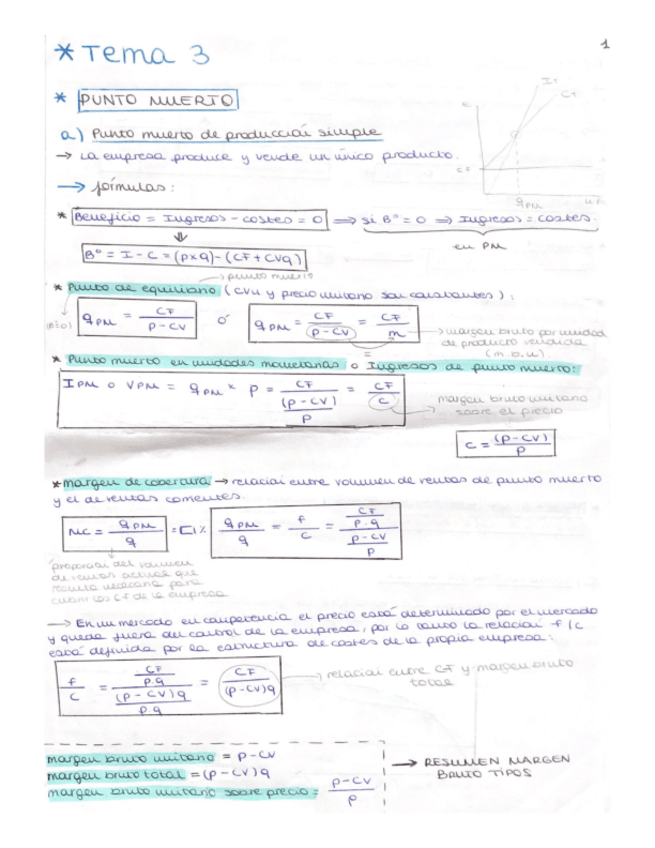 1
* Tema 3
* PUNTO MUERTO
a) Punto muerto de producción simple
→ La empresa produce y vende un único producto.
IT
CT
€
CF
qPM
→ fórmulas:
* Beneficio = Ingresos - costes = 0 ⇒ si Bº = 0 ⇒ Ingresos = costes.
en PM
⇓
Bº = I - C = (p×q) - (CF + CVq)
→ punto muerto
* Punto de equilibrio (CVu y precio unitario son constantes):
qPM = CF / (p - CV) ó qPM = CF / (p - CV) = CF / m
→ margen bruto por unidad
de producto vendida
(m.b.u).
* Punto muerto en unidades monetarias o Ingresos de punto muerto:
IPM o VPM = qPM × p = CF / ((p - CV) / p) = CF / c
margen bruto unitario
sobre el precio
c = (p - CV) / p
* margen de cobertura → relación entre volumen de ventas de punto muerto
y el de ventas corrientes.
MC = qPM / q = □1%
qPM / q = f / c = (CF / p·q) / ((p - CV) / p)
proporción del volumen
de ventas actual que
resulta necesaria para
cubrir los CF de la empresa
→ En un mercado en competencia el precio está determinado por el mercado
y queda fuera del control de la empresa, por lo tanto la relación f/c
está definida por la estructura de costes de la propia empresa:
f / c = (CF / p·q) / ((p - CV)q / p·q) = CF / (p - CV)q
→ relación entre CF y margen bruto
total
margen bruto unitario = p - CV
margen bruto total = (p - CV)q
margen bruto unitario sobre precio = (p - CV) / p
→ RESUMEN MARGEN
BRUTO TIPOS